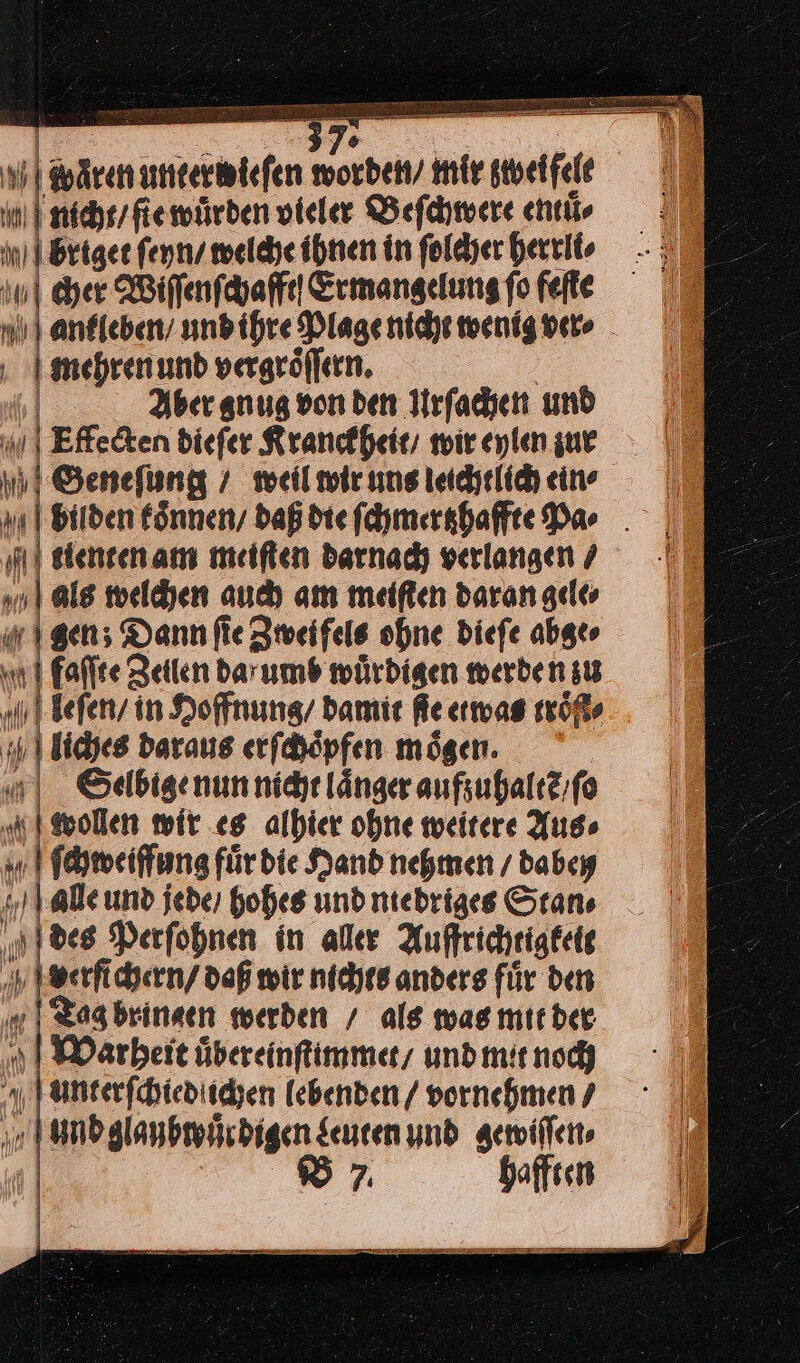 37.
wåren unterwieſen worden/ mir zweifelt
nicht/ ſie wuͤrden vieler Beſchwere entuͤ⸗
briget ſeyn/ welche ihnen in ſolcher herrli⸗
cher Wiſſenſchafft Ermangelung ſo feſte
ankleben/ und ihre Plage nicht wenig ver⸗
mehren und vergroͤſſern.
Aber gnug von den Urſachen und
Effecten dieſer Kranckheit/ wir eylen zur
Geneſung / weil wir uns leichtlich ein⸗
bilden koͤnnen/ daß die ſchmertzhaffte Pa⸗
tienten am meiſten darnach verlangen /
als welchen auch am meiſten daran gele⸗
gen; Dann ſie Zweifels ohne dieſe abge⸗
faſſte Zeilen darumb wuͤrdigen werden zu
leſen/ in Hoffnung/ damit ſie etwas troͤſt⸗
liches daraus erſchoͤpfen moͤgen.
Selbige nun nicht laͤnger aufzuhaltẽ/ ſo
wollen wir es alhier ohne weitere Aus⸗
ſchweiffung fuͤr die Hand nehmen / dabey
alle und jede/ hohes und niedriges Stan⸗
des Perſohnen in aller Auffrichtigkeit
verſichern/ daß wir nichts anders fuͤr den
Tag bringen werden / als was mit der
Warheit uͤbereinſtimmet/ und mit noch
unterſchiedlichen lebenden / vornehmen /
und glaubwuͤrdigen Leuten und gewiſſen⸗
B 7. hafften